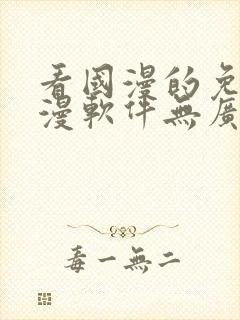 看國漫的免
漫軟件無廣
毒一無二